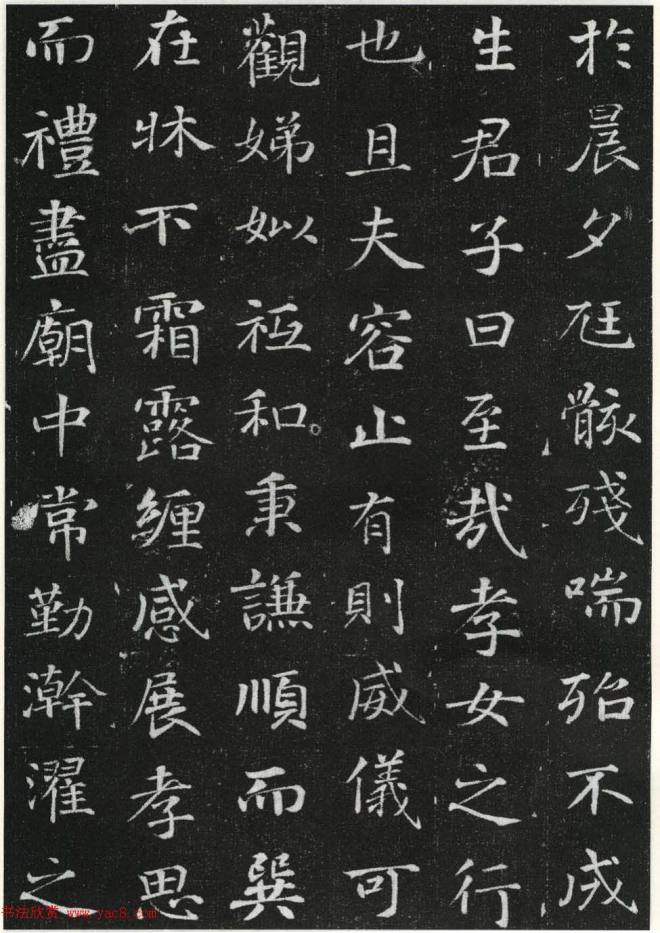 於晨夕尫骸殘喘殆不成
生君子曰至哉孝女之行
也且夫容止有則威儀可
觀娣姒祗和秉謙順而巽
在牀下霜露纏感展孝思
而禮盡廟中常勤澣濯之
书法欣赏 www.yac8.com